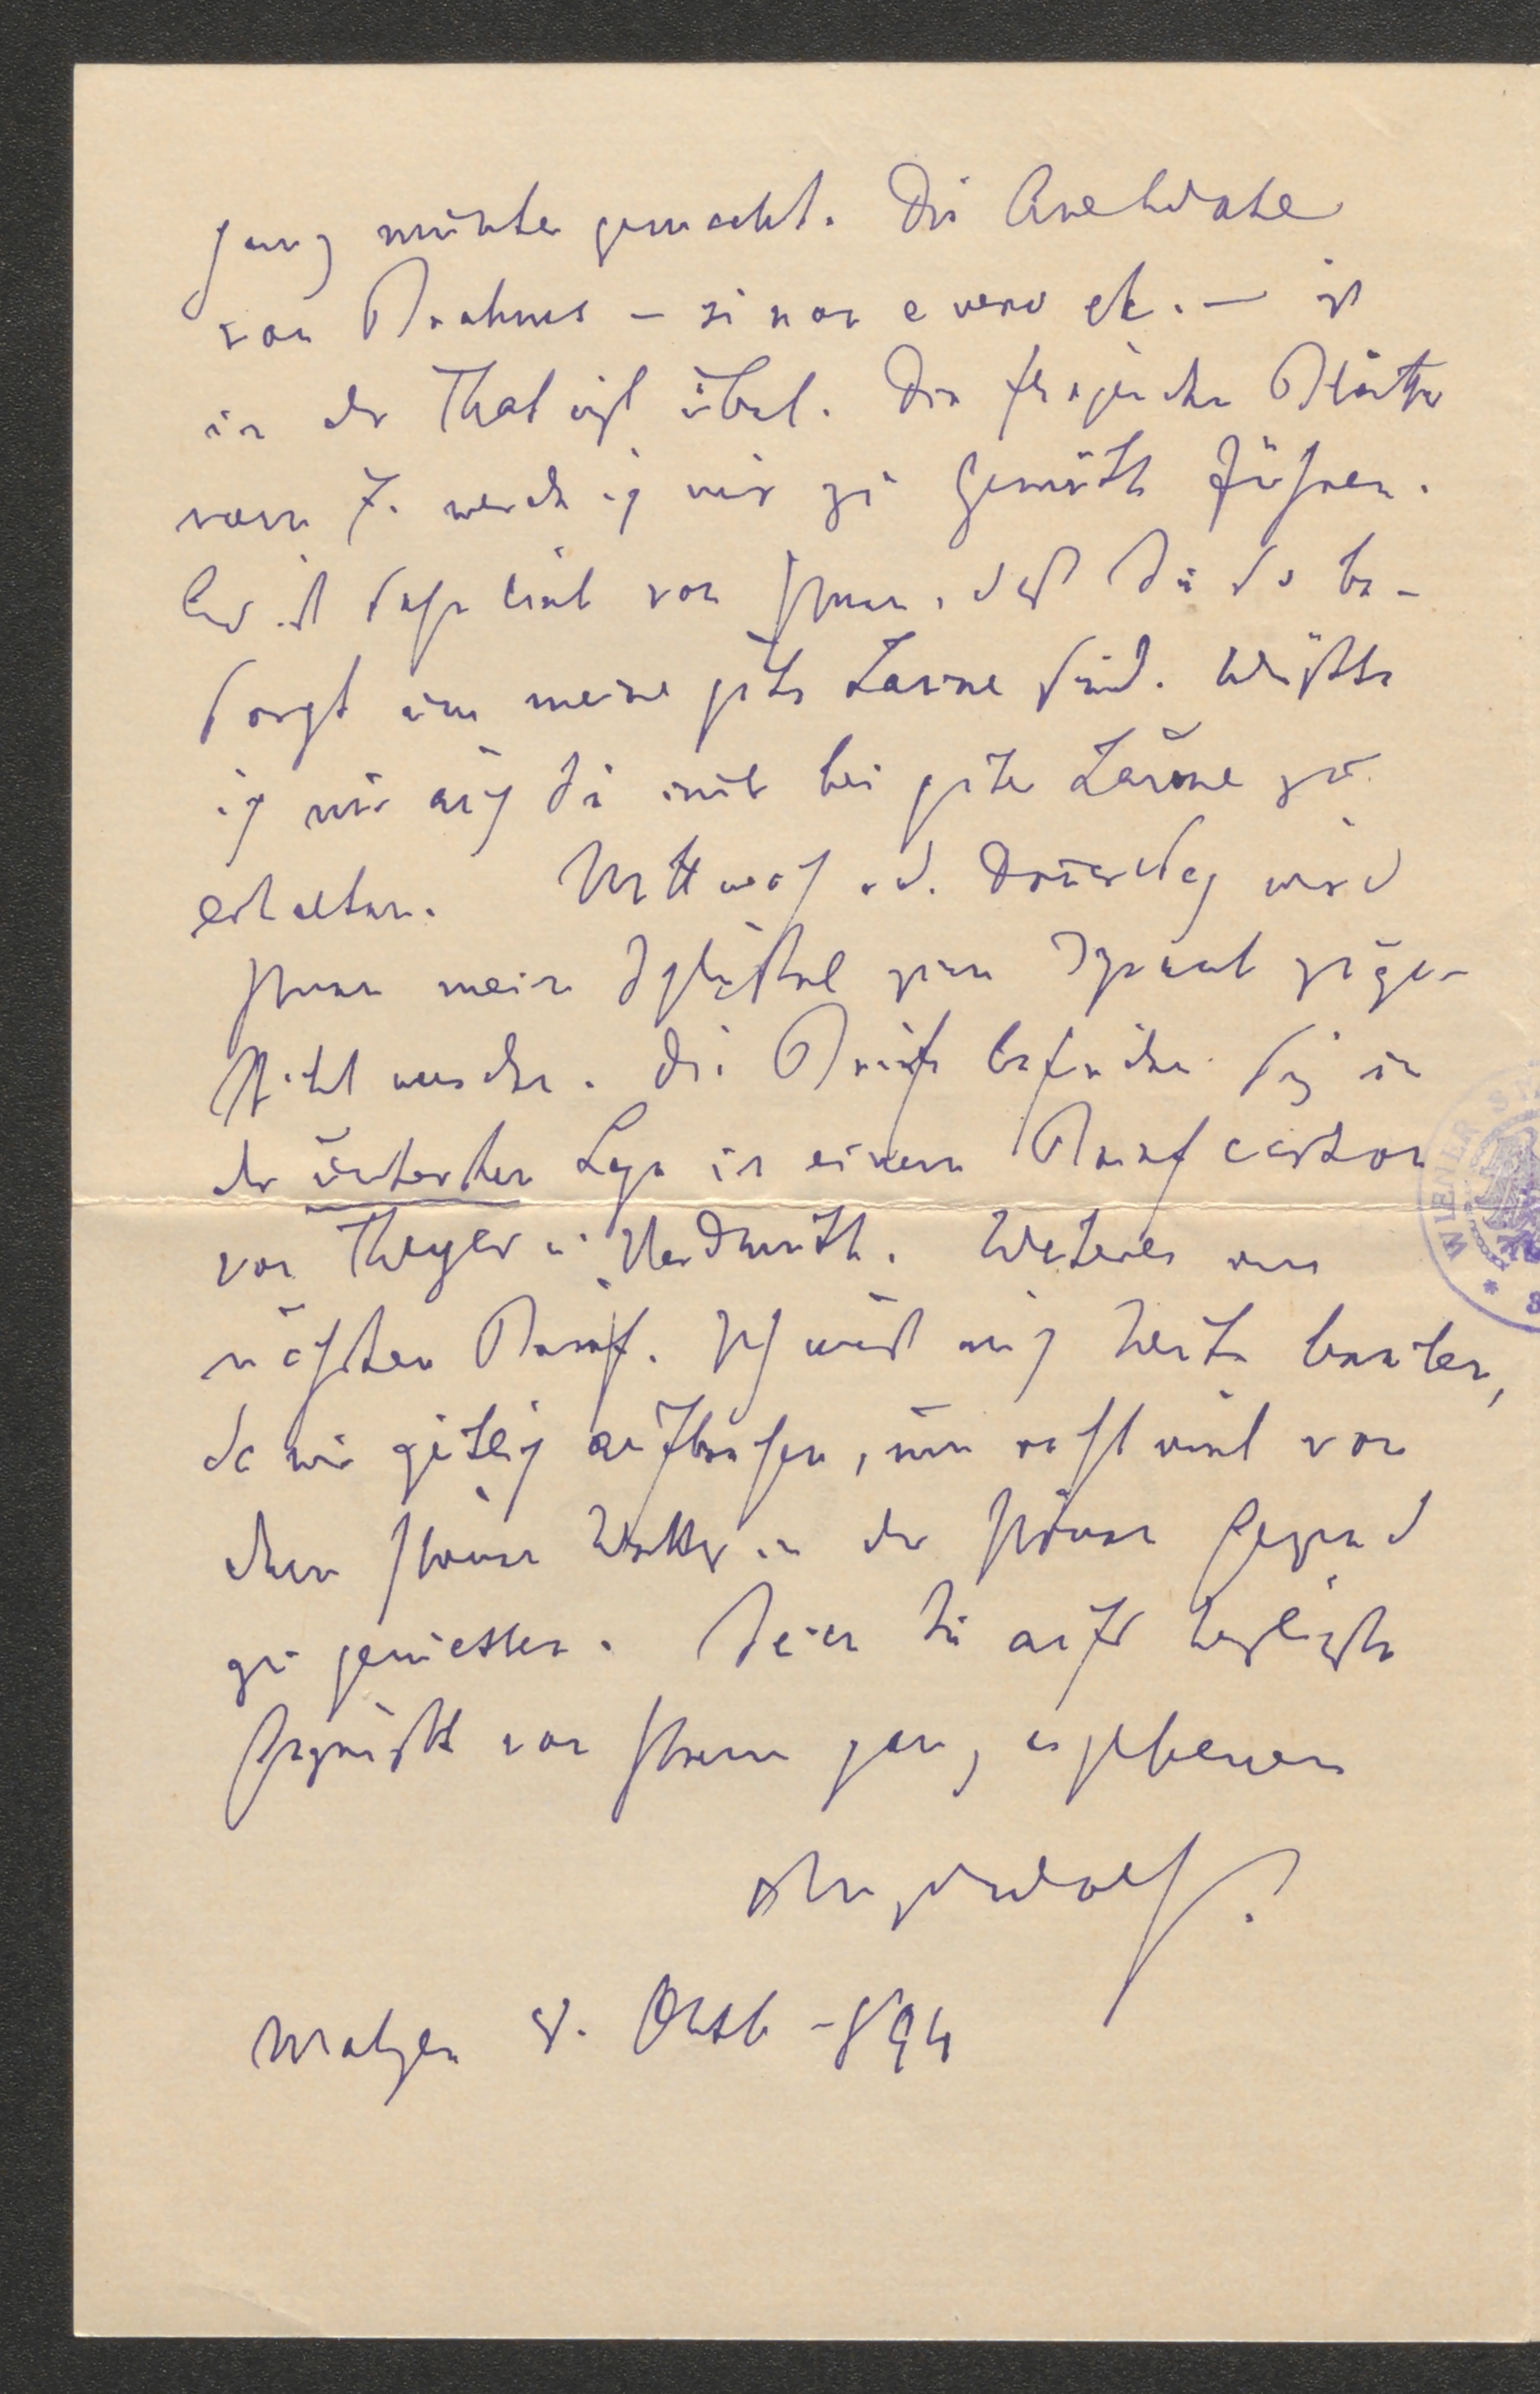 ganz munter gemacht. Die Anekdote
von Brahms – si non e vero etc. – ist
in der That nicht übel. Die fliegenden Blätter
vom 7. werde ich mir zu Gemüth führen.
Es ist sehr lieb von Ihnen, daß Sie so be-
sorgt um meine gute Laune sind. Wüßte
ich nur auch Sie immer bei guter Laune zu
erhalten. Mittwoch od. Donnerstag wird
Ihnen mein Schlüssel zum Schrank zuge-
stellt werden. Die Briefe befinden sich in
der untersten Lage in einem Briefcarton
von Theyer u. Hardtmuth. Weiteres im
nächsten Brief. Ich muß mich heute beeilen,
da wir zeitlich aufbrechen, um recht viel von
dem schönen Wetter in der schönen Gegend
zu geniessen. Seien Sie aufs herzlichste
gegrüßt von Ihrem ganz ergebenen
Hugo Wolf.
Matzen 8. Octob 1894
WIENER S